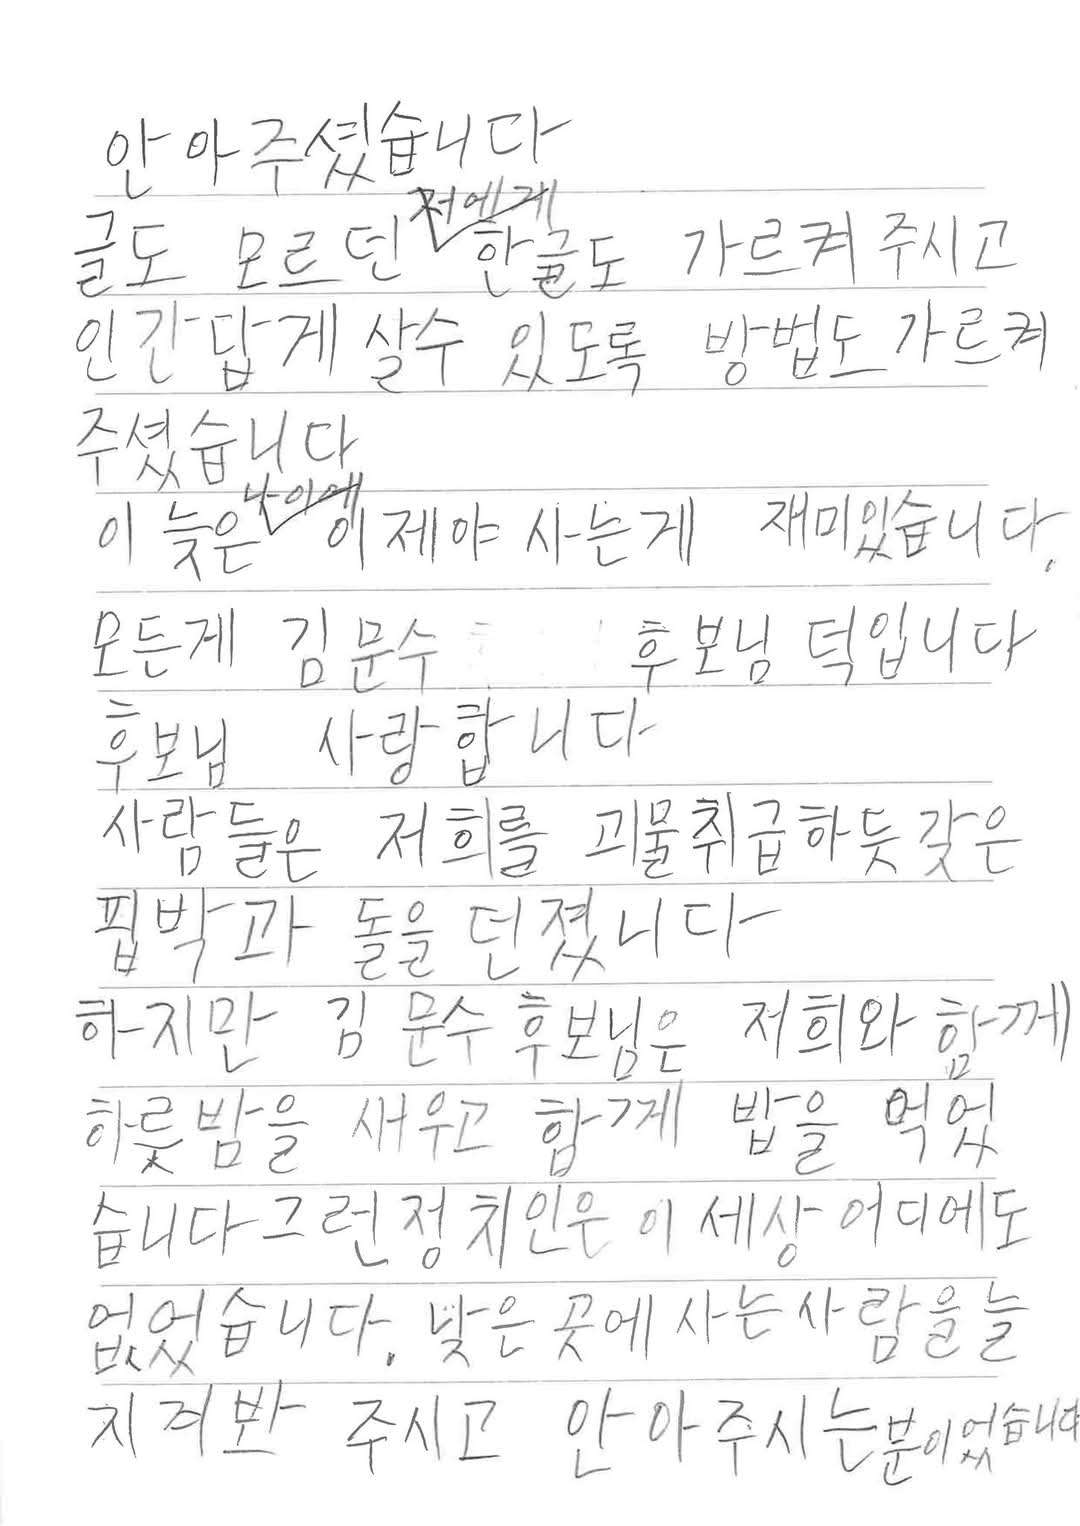 안아주셨습니다
글도 모르던 저에게 한글도 가르켜 주시고
인간답게 살수 있도록 방법도 가르켜
주셨습니다
이 늦은 나이에 이제야 사는게 재미있습니다.
모든게 김문수 후보님 덕입니다
후보님 사랑합니다
사람들은 저희를 괴물취급하듯 갖은
핍박과 돌을 던졌니다
하지만 김문수 후보님은 저희와 함께
하룻밤을 새우고 함께 밥을 먹었
습니다 그런 정치인은 이 세상 어디에도
없었습니다. 낮은 곳에 사는 사람을 늘
지켜봐 주시고 안아주시는 분이었습니다